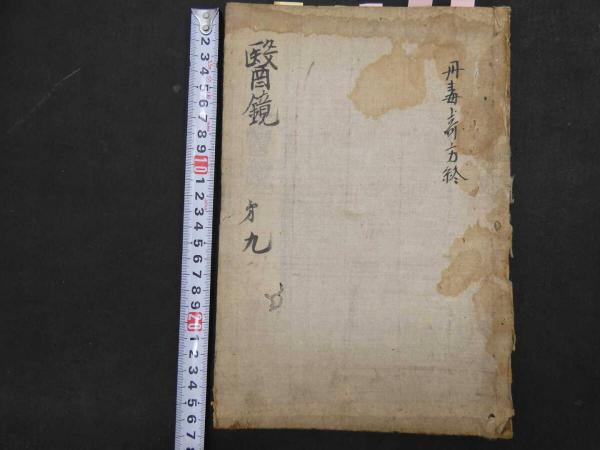 丹毒奇方終
醫鏡
第九
2 3 4 5 6 7 8 9 10 1 2 3 4 5 6 7 8 9 20 1 2 3 4 5 6